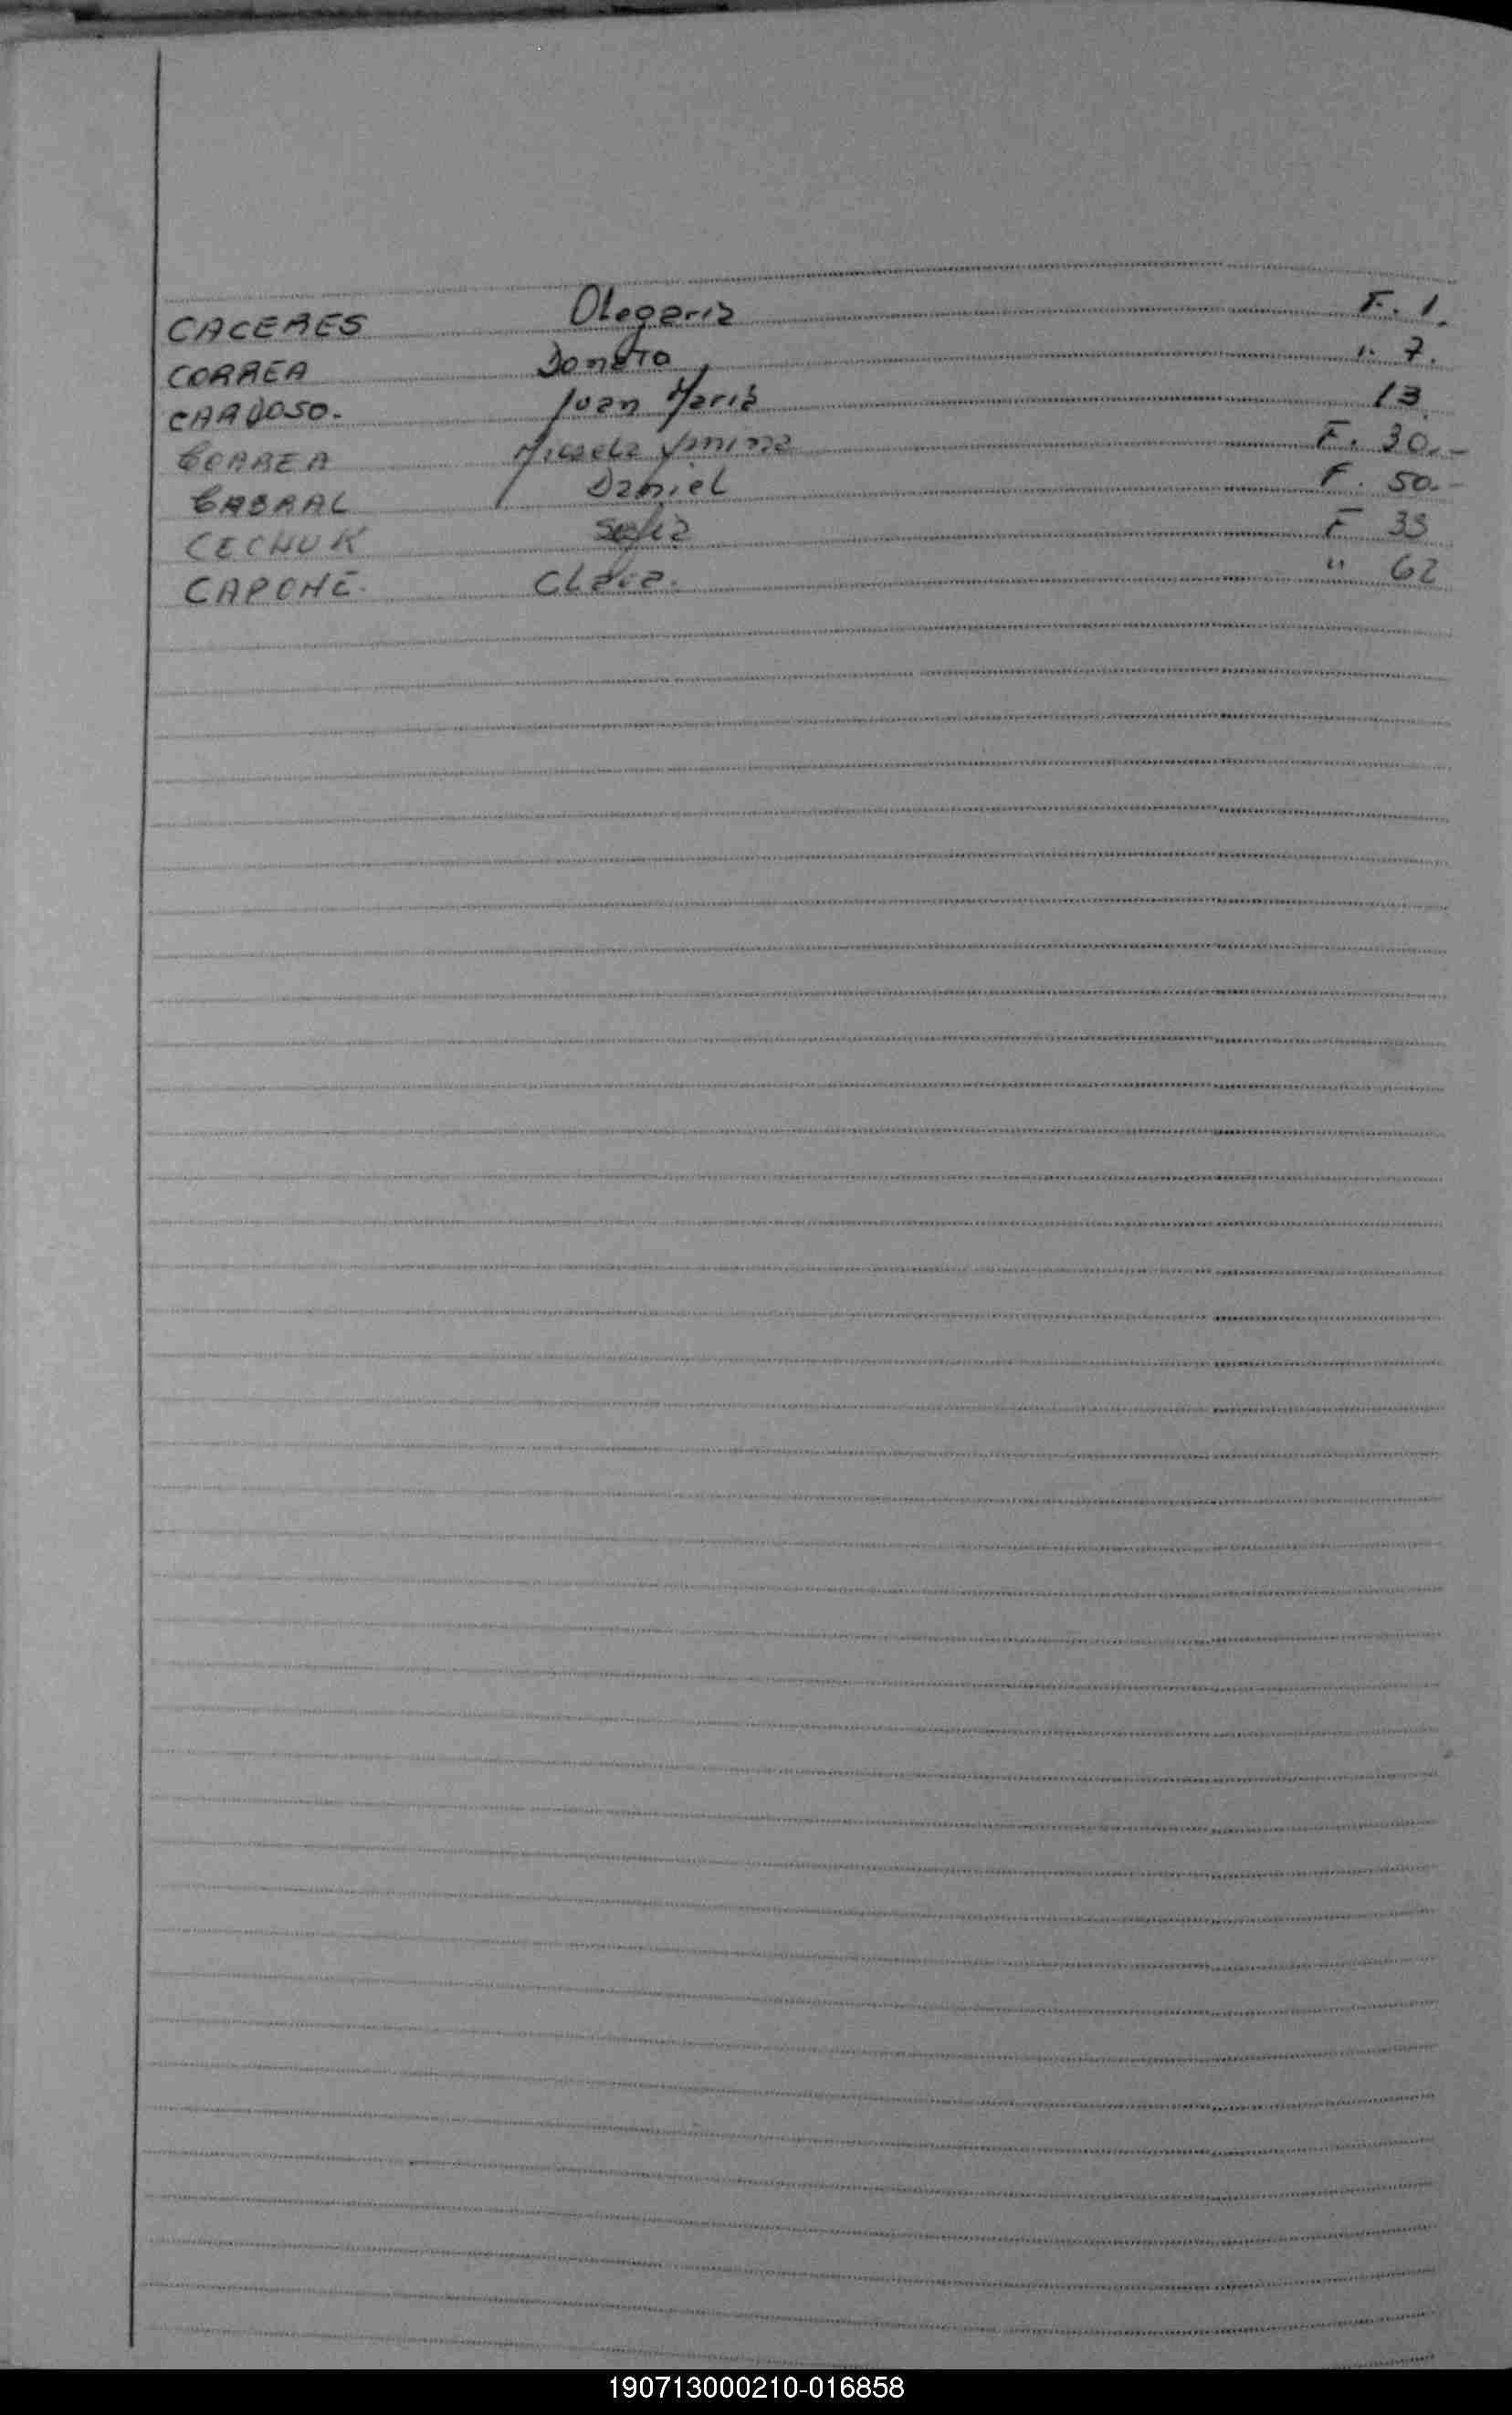 CACERES Olegaria F. 1.
CORREA Donato " 7.
CARDOSO. Juan Maria 13
CORREA Micaela Yanina F. 30.-
CABRAL Daniel F. 50.-
CECHUK Sofia F 35
CAPONE. Clara. " 62
190713000210-016858